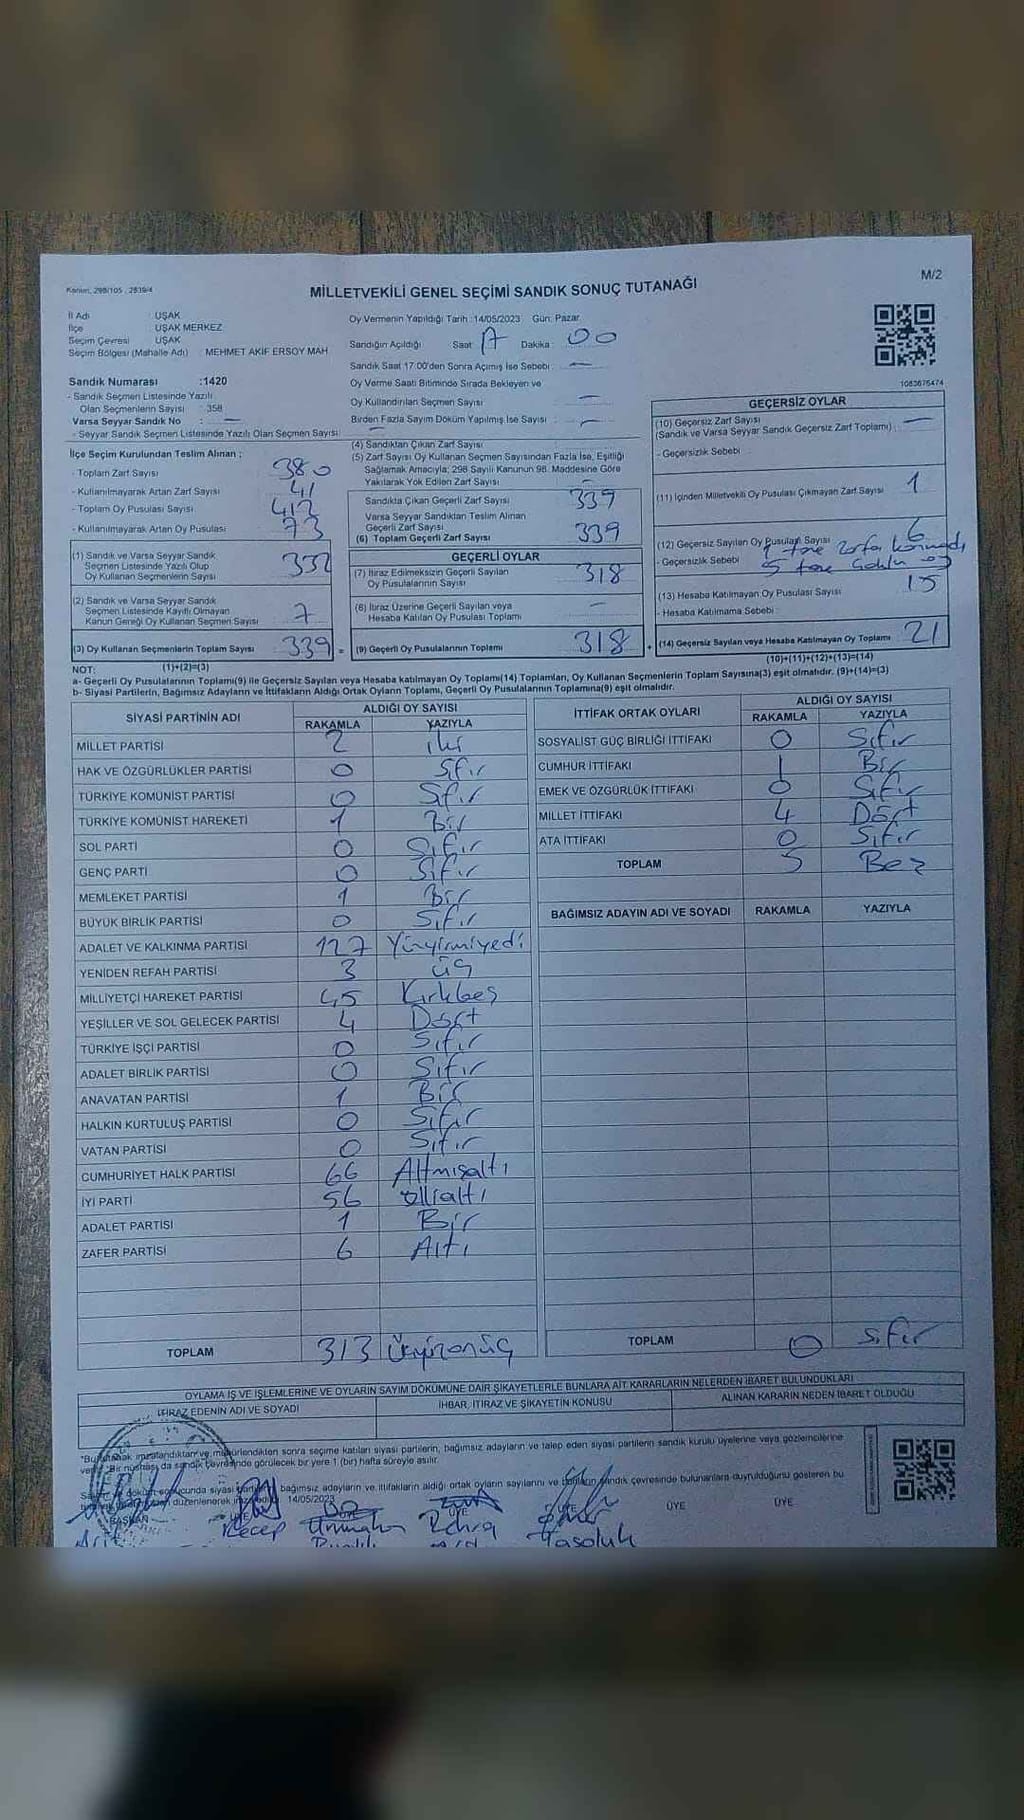 Kanun, 298/105 , 2839/4
M/2
MİLLETVEKİLİ GENEL SEÇİMİ SANDIK SONUÇ TUTANAĞI
İl Adı UŞAK
İlçe UŞAK MERKEZ
Seçim Çevresi UŞAK
Seçim Bölgesi (Mahalle Adı) : MEHMET AKİF ERSOY MAH
Sandık Numarası :1420
- Sandık Seçmen Listesinde Yazılı
Olan Seçmenlerin Sayısı : 358
Varsa Seyyar Sandık No : —
- Seyyar Sandık Seçmen Listesinde Yazılı Olan Seçmen Sayısı: —
Oy Vermenin Yapıldığı Tarih :14/05/2023 Gün: Pazar
Sandığın Açıldığı Saat : 17 Dakika : 00
Sandık Saat 17:00'den Sonra Açımış İse Sebebi : —
Oy Verme Saati Bitiminde Sırada Bekleyen ve
Oy Kullandırılan Seçmen Sayısı : —
Birden Fazla Sayım Döküm Yapılmış İse Sayısı : —
1083675474
İlçe Seçim Kurulundan Teslim Alınan ;
- Toplam Zarf Sayısı 380
- Kullanılmayarak Artan Zarf Sayısı 41
- Toplam Oy Pusulası Sayısı 412
- Kullanılmayarak Artan Oy Pusulası 73
(1) Sandık ve Varsa Seyyar Sandık
Seçmen Listesinde Yazılı Olup
Oy Kullanan Seçmenlerin Sayısı 332
(2) Sandık ve Varsa Seyyar Sandık
Seçmen Listesinde Kayıtlı Olmayan
Kanun Gereği Oy Kullanan Seçmen Sayısı 7
(3) Oy Kullanan Seçmenlerin Toplam Sayısı 339 =
(4) Sandıktan Çıkan Zarf Sayısı
(5) Zarf Sayısı Oy Kullanan Seçmen Sayısından Fazla İse, Eşitliği
Sağlamak Amacıyla; 298 Sayılı Kanunun 98. Maddesine Göre
Yakılarak Yok Edilen Zarf Sayısı —
Sandıkta Çıkan Geçerli Zarf Sayısı 339
Varsa Seyyar Sandıktan Teslim Alınan
Geçerli Zarf Sayısı
(6) Toplam Geçerli Zarf Sayısı 339
GEÇERLİ OYLAR
(7) İtiraz Edilmeksizin Geçerli Sayılan
Oy Pusulalarının Sayısı 318
(8) İtiraz Üzerine Geçerli Sayılan veya
Hesaba Katılan Oy Pusulası Toplamı —
(9) Geçerli Oy Pusulalarının Toplamı 318 +
GEÇERSİZ OYLAR
(10) Geçersiz Zarf Sayısı
(Sandık ve Varsa Seyyar Sandık Geçersiz Zarf Toplamı) : —
- Geçersizlik Sebebi :
(11) İçinden Milletvekili Oy Pusulası Çıkmayan Zarf Sayısı 1
(12) Geçersiz Sayılan Oy Pusulası Sayısı 6
- Geçersizlik Sebebi 1 tane zarfa konmadı
5 tane
(13) Hesaba Katılmayan Oy Pusulası Sayısı 15
- Hesaba Katılmama Sebebi :
(14) Geçersiz Sayılan veya Hesaba Katılmayan Oy Toplamı 21
NOT: (1)+(2)=(3) (10)+(11)+(12)+(13)=(14)
a- Geçerli Oy Pusulalarının Toplamı(9) ile Geçersiz Sayılan veya Hesaba katılmayan Oy Toplamı(14) Toplamları, Oy Kullanan Seçmenlerin Toplam Sayısına(3) eşit olmalıdır. (9)+(14)=(3)
b- Siyasi Partilerin, Bağımsız Adayların ve İttifakların Aldığı Ortak Oyların Toplamı, Geçerli Oy Pusulalarının Toplamına(9) eşit olmalıdır.
SİYASİ PARTİNİN ADI ALDIĞI OY SAYISI
RAKAMLA YAZIYLA
MİLLET PARTİSİ 2 iki
HAK VE ÖZGÜRLÜKLER PARTİSİ 0 Sıfır
TÜRKİYE KOMÜNİST PARTİSİ 0 Sıfır
TÜRKİYE KOMÜNİST HAREKETİ 1 Bir
SOL PARTİ 0 Sıfır
GENÇ PARTİ 0 Sıfır
MEMLEKET PARTİSİ 1 Bir
BÜYÜK BİRLİK PARTİSİ 0 Sıfır
ADALET VE KALKINMA PARTİSİ 127 Yüzyirmiyedi
YENİDEN REFAH PARTİSİ 3 üç
MİLLİYETÇİ HAREKET PARTİSİ 45 Kırkbeş
YEŞİLLER VE SOL GELECEK PARTİSİ 4 Dört
TÜRKİYE İŞÇİ PARTİSİ 0 Sıfır
ADALET BİRLİK PARTİSİ 0 Sıfır
ANAVATAN PARTİSİ 1 Bir
HALKIN KURTULUŞ PARTİSİ 0 Sıfır
VATAN PARTİSİ 0 Sıfır
CUMHURİYET HALK PARTİSİ 66 Altmışaltı
İYİ PARTİ 56 Ellialtı
ADALET PARTİSİ 1 Bir
ZAFER PARTİSİ 6 Altı
TOPLAM 313 Üçyüzonüç
İTTİFAK ORTAK OYLARI ALDIĞI OY SAYISI
RAKAMLA YAZIYLA
SOSYALİST GÜÇ BİRLİĞİ İTTİFAKI 0 Sıfır
CUMHUR İTTİFAKI 1 Bir
EMEK VE ÖZGÜRLÜK İTTİFAKI 0 Sıfır
MİLLET İTTİFAKI 4 Dört
ATA İTTİFAKI 0 Sıfır
TOPLAM 5 Beş
BAĞIMSIZ ADAYIN ADI VE SOYADI RAKAMLA YAZIYLA
TOPLAM 0 Sıfır
OYLAMA İŞ VE İŞLEMLERİNE VE OYLARIN SAYIM DÖKÜMÜNE DAİR ŞİKAYETLERLE BUNLARA AİT KARARLARIN NELERDEN İBARET BULUNDUKLARI
İTİRAZ EDENİN ADI VE SOYADI İHBAR, İTİRAZ VE ŞİKAYETİN KONUSU ALINAN KARARIN NEDEN İBARET OLDUĞU
*Bu tutanak imzalandıktan ve mühürlendikten sonra seçime katılan siyasi partilerin, bağımsız adayların ve talep eden siyasi partilerin sandık kurulu üyelerine veya gözlemcilerine
verilir. Bir nüshası da sandık çevresinde görülecek bir yere 1 (bir) hafta süreyle asılır.
döküm sonucunda siyasi bağımsız adayların ve ittifakların aldığı ortak oyların sayılarını ve sandık çevresinde bulunanlara duyrulduğunu gösteren bu
düzenlenerek 14/05/2023
BAŞKAN ÜYE ÜYE ÜYE ÜYE ÜYE
Recep Zehra Ömer
Yasoluk